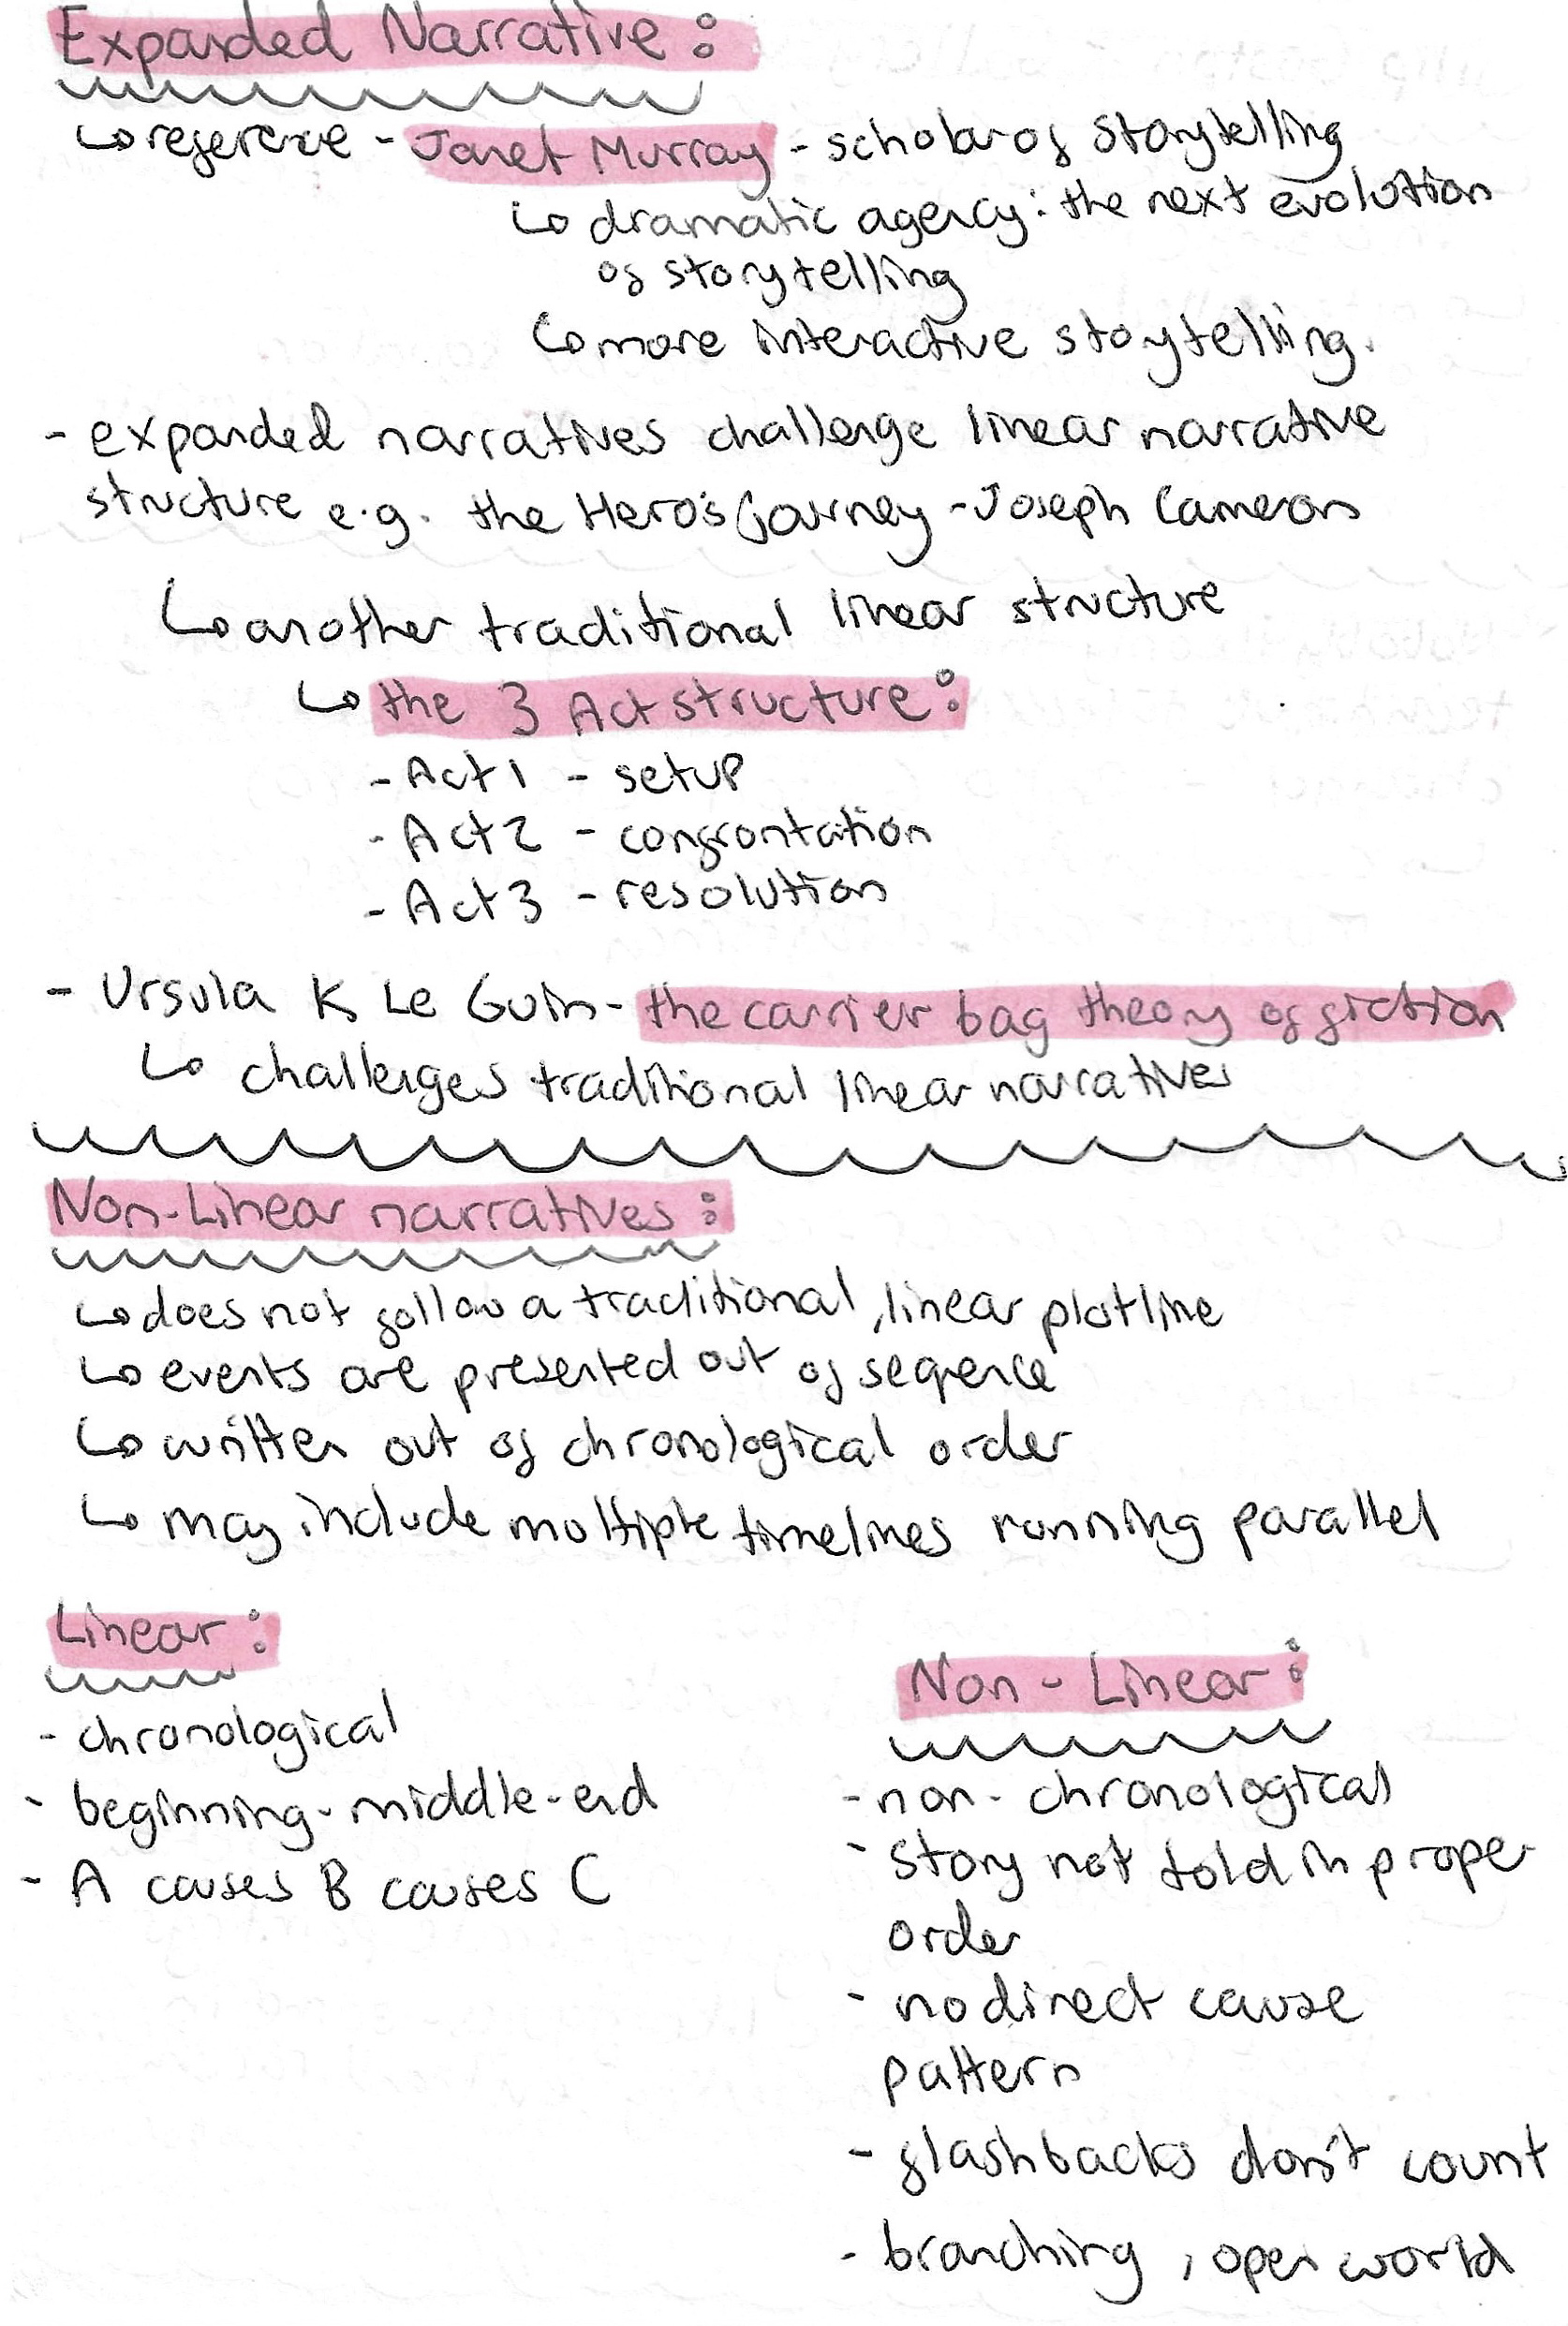 Expanded Narrative:
↳ reference - Janet Murray - scholar of storytelling
↳ dramatic agency: the next evolution
of storytelling
↳ more interactive storytelling.
- expanded narratives challenge linear narrative
structure e.g. the Hero's journey - Joseph Cameron
↳ another traditional linear structure
↳ the 3 Act structure:
- Act 1 - setup
- Act 2 - confrontation
- Act 3 - resolution
- Ursula K Le Guin - the carrier bag theory of fiction
↳ challenges traditional linear narratives
Non-Linear narratives:
↳ does not follow a traditional, linear plotline
↳ events are presented out of seqence
↳ written out of chronological order
↳ may include multiple timelines running parallel
Linear:
- chronological
- beginning - middle - end
- A causes B causes C
Non - Linear:
- non - chronological
- story not told in proper
order
- no direct cause
pattern
- flashbacks don't count
- branching, open world